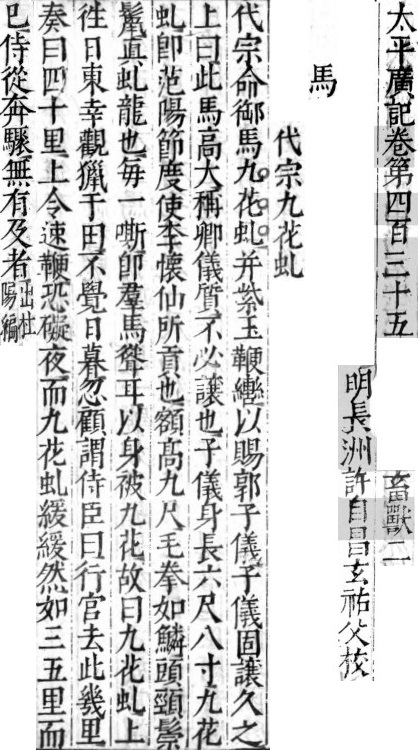 太平廣記卷第四百三十五
畜獸二
明長洲許自昌玄祐父校
馬
代宗九花虬
代宗命御馬九花虬并紫玉鞭轡以賜郭子儀子儀固讓久之
上曰此馬高大稱卿儀質不必讓也子儀身長六尺八寸九花
虬卽范陽節度使李懷仙所貢也額高九尺毛拳如鱗頭頸鬃
鬣眞虬龍也每一嘶卽羣馬聳耳以身被九花故曰九花虬上
徃日東幸觀獵于田不覺日暮忽顧謂侍臣曰行宫去此幾里
奏曰四十里上令速鞭恐礙夜而九花虬緩緩然如三五里而
已侍從奔驟無有及者出杜陽編